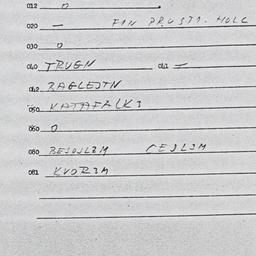 012 0
020 — FIN PROSTR. HOLC
030 0
040 TRUGN 041 —
042 BAGLEJTN
050 KATAFALK :
060 0
080 BESOSLEM CEJLEM
081 KVORIM